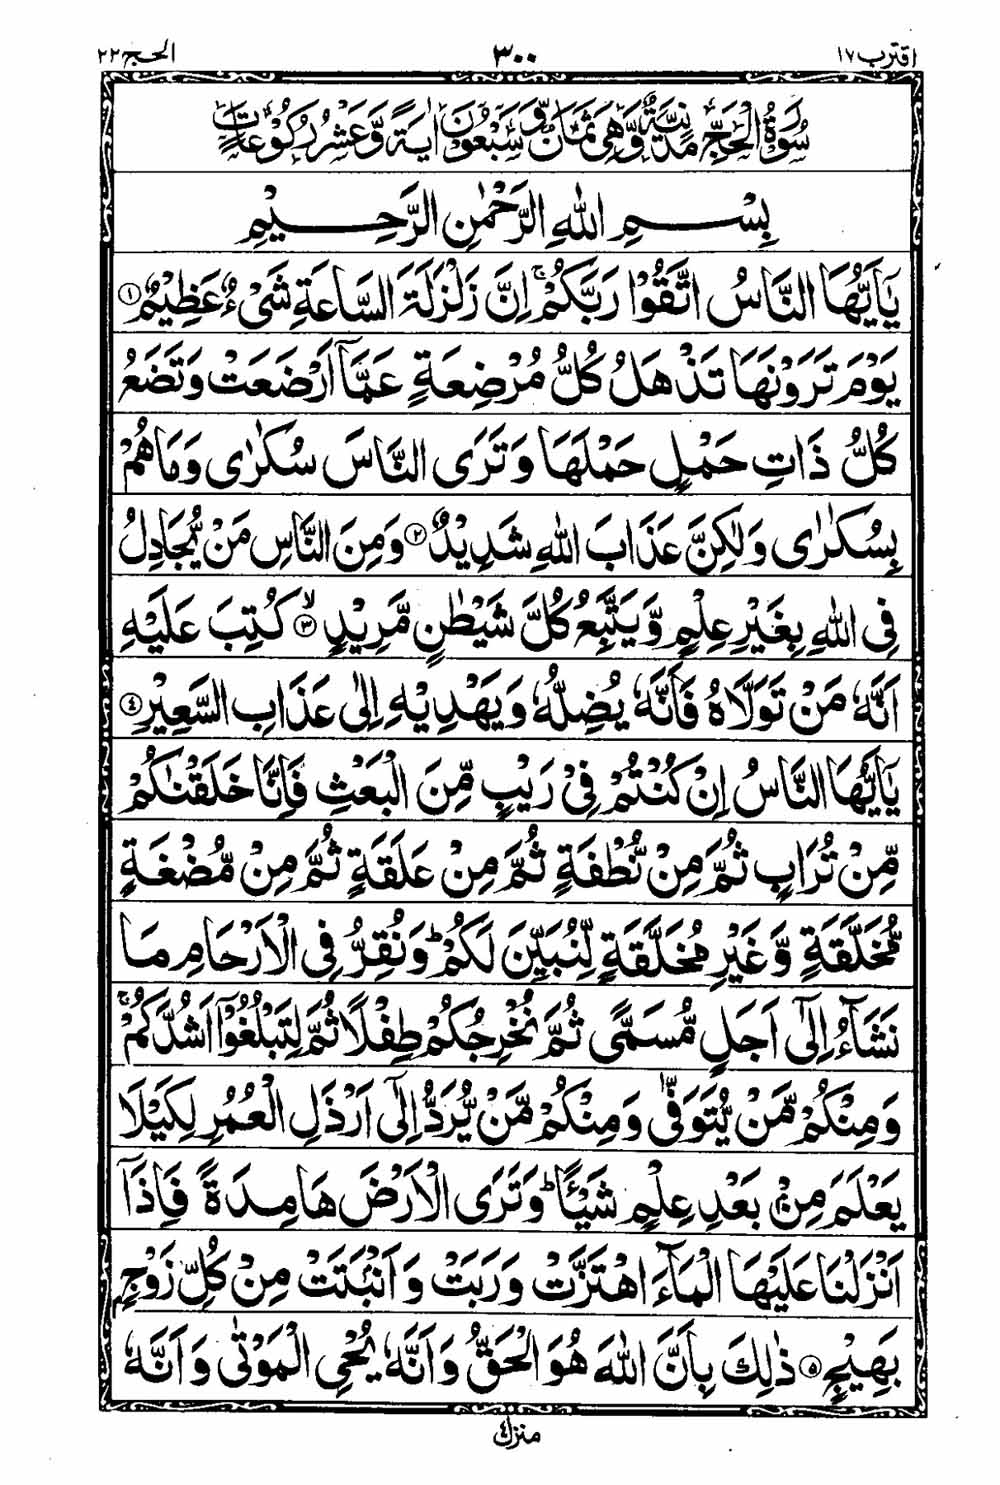 اقترب ١٧ ٣٠٠ الحج ٢٢
سُوْرَةُ الْحَجِّ مَدَنِيَّةٌ وَّهِىَ ثَمَانٌ وَّسَبْعُوْنَ اٰيَةً وَّعَشْرُ رُكُوْعَاتٍ
بِسْمِ اللهِ الرَّحْمٰنِ الرَّحِيْمِ
يٰۤاَيُّهَا النَّاسُ اتَّقُوْا رَبَّكُمْ ۚ اِنَّ زَلْزَلَةَ السَّاعَةِ شَىْءٌ عَظِيْمٌ ۝١
يَوْمَ تَرَوْنَهَا تَذْهَلُ كُلُّ مُرْضِعَةٍ عَمَّاۤ اَرْضَعَتْ وَتَضَعُ
كُلُّ ذَاتِ حَمْلٍ حَمْلَهَا وَتَرَى النَّاسَ سُكٰرٰى وَمَا هُمْ
بِسُكٰرٰى وَلٰكِنَّ عَذَابَ اللهِ شَدِيْدٌ ۝٢ وَمِنَ النَّاسِ مَنْ يُّجَادِلُ
فِى اللهِ بِغَيْرِ عِلْمٍ وَّيَتَّبِعُ كُلَّ شَيْطٰنٍ مَّرِيْدٍ ۙ۝٣ كُتِبَ عَلَيْهِ
اَنَّهٗ مَنْ تَوَلَّاهُ فَاَنَّهٗ يُضِلُّهٗ وَيَهْدِيْهِ اِلٰى عَذَابِ السَّعِيْرِ ۝٤
يٰۤاَيُّهَا النَّاسُ اِنْ كُنْتُمْ فِىْ رَيْبٍ مِّنَ الْبَعْثِ فَاِنَّا خَلَقْنٰكُمْ
مِّنْ تُرَابٍ ثُمَّ مِنْ نُّطْفَةٍ ثُمَّ مِنْ عَلَقَةٍ ثُمَّ مِنْ مُّضْغَةٍ
مُّخَلَّقَةٍ وَّغَيْرِ مُخَلَّقَةٍ لِّنُبَيِّنَ لَكُمْ ؕ وَنُقِرُّ فِى الْاَرْحَامِ مَا
نَشَآءُ اِلٰۤى اَجَلٍ مُّسَمًّى ثُمَّ نُخْرِجُكُمْ طِفْلًا ثُمَّ لِتَبْلُغُوْۤا اَشُدَّكُمْ ۚ
وَمِنْكُمْ مَّنْ يُّتَوَفّٰى وَمِنْكُمْ مَّنْ يُّرَدُّ اِلٰۤى اَرْذَلِ الْعُمُرِ لِكَيْلَا
يَعْلَمَ مِنْۢ بَعْدِ عِلْمٍ شَيْـًٔا ؕ وَتَرَى الْاَرْضَ هَامِدَةً فَاِذَاۤ
اَنْزَلْنَا عَلَيْهَا الْمَآءَ اهْتَزَّتْ وَرَبَتْ وَاَنْۢبَتَتْ مِنْ كُلِّ زَوْجٍۭ
بَهِيْجٍ ۝٥ ذٰلِكَ بِاَنَّ اللهَ هُوَ الْحَقُّ وَاَنَّهٗ يُحْىِ الْمَوْتٰى وَاَنَّهٗ
منزل ٤